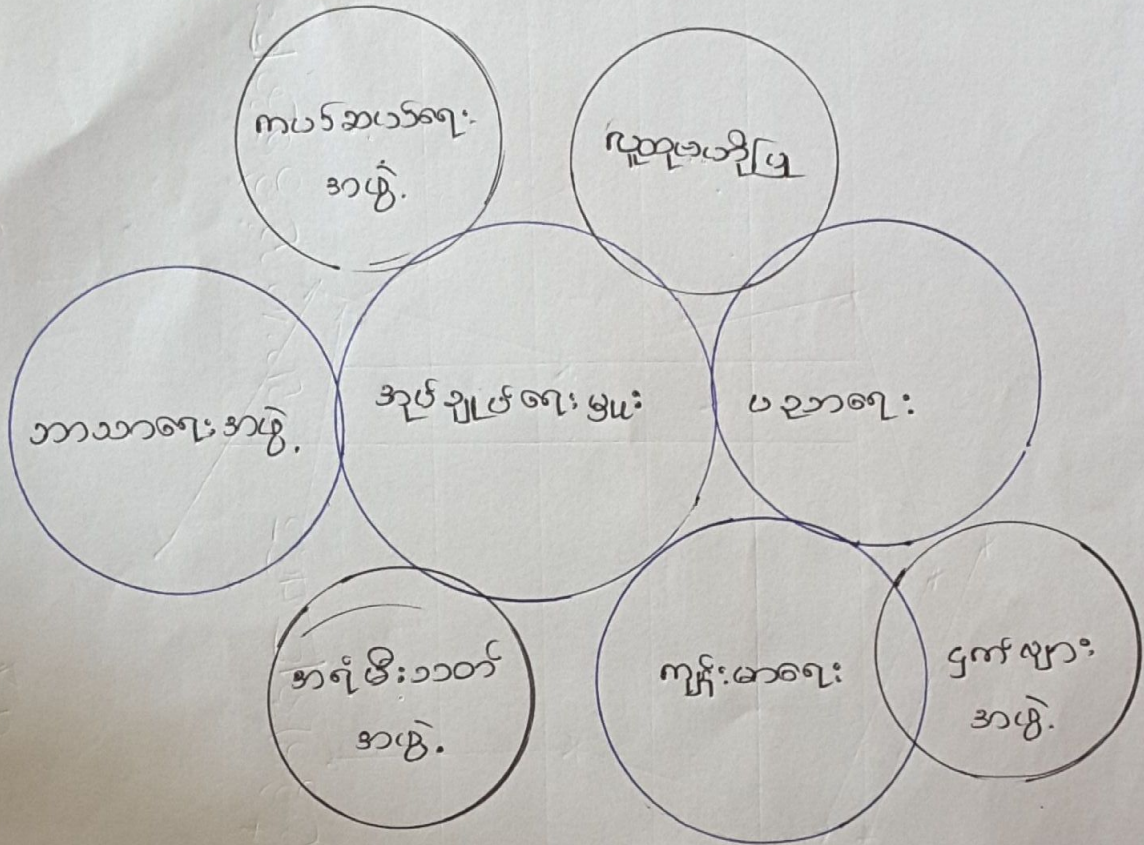 ကပ်ဆပ်ရေး
အဖွဲ့
လူထုဗဟိုပြု
ဘာသာရေးအဖွဲ့
အုပ်ချုပ်ရေးမှူး
ပညာရေး
အရံမီးသတ်
အဖွဲ့
ကျန်းမာရေး
ငှက်ဖျား
အဖွဲ့